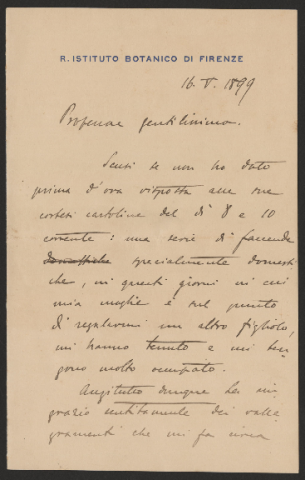 R. ISTITUTO BOTANICO DI FIRENZE
16. V. 1899
Professore gentilissimo.
Scusi se non ho dato
prima d'ora risposta alle sue
cortesi cartoline del dì 8 e 10
corrente: una serie di faccende
domestiche specialmente domesti
che, in questi giorni in cui
mia moglie è sul punto
di regalarmi un altro figliolo,
mi hanno tenuto e mi ten
gono molto occupato.
Anzitutto dunque La rin
grazio sentitamente dei ralle
gramenti che mi fa circa